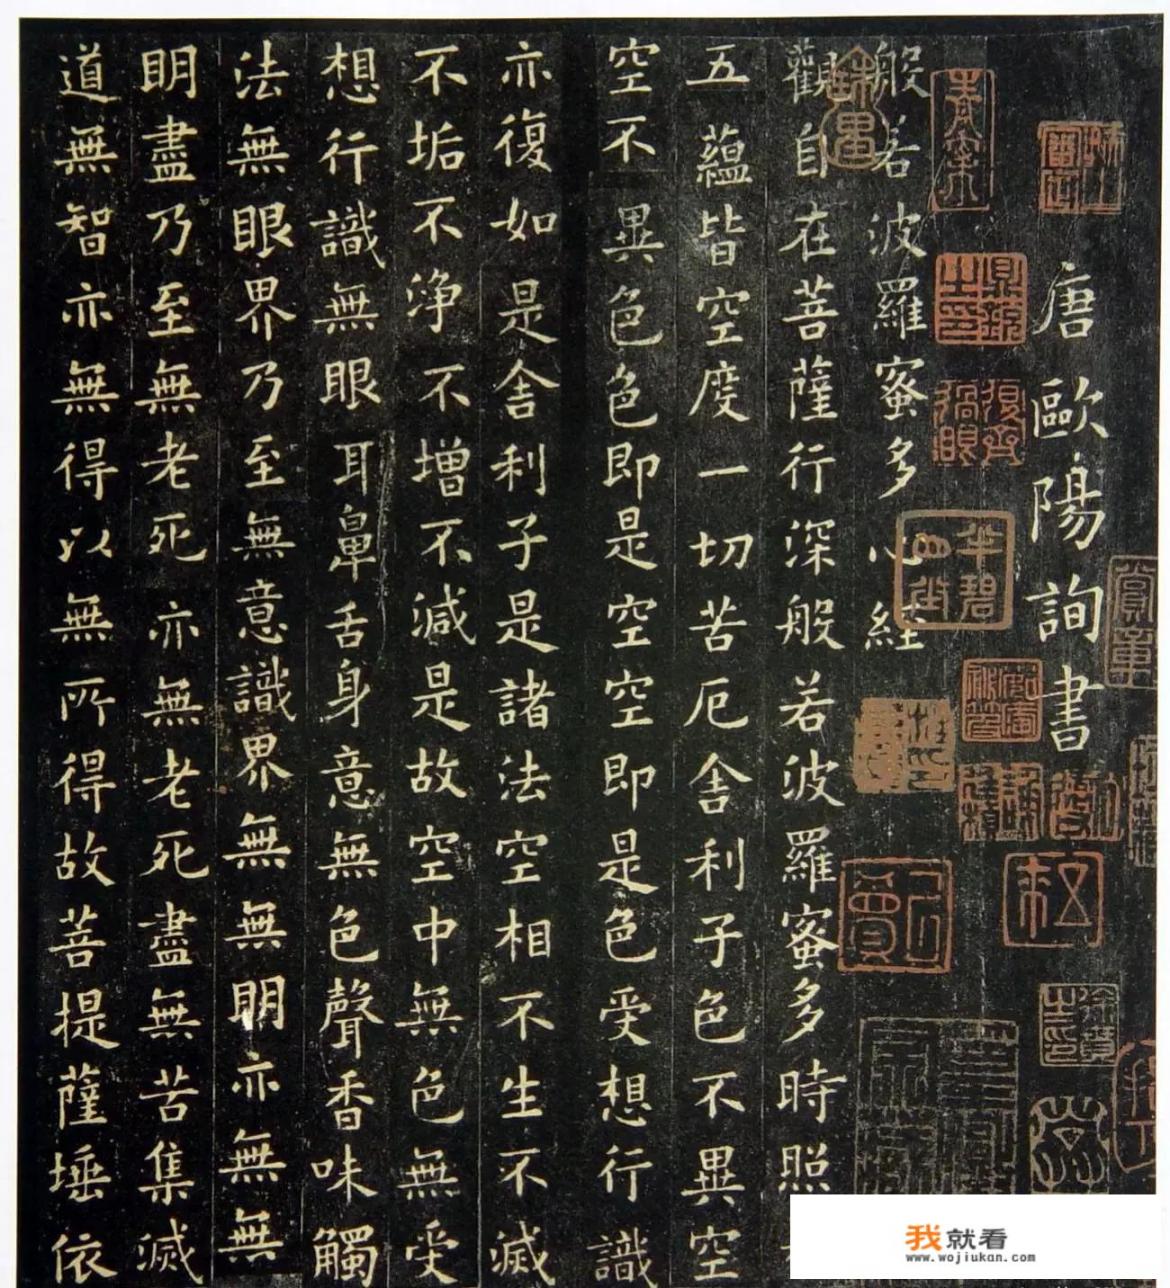 唐歐陽詢書
般若波羅蜜多心経
觀自在菩薩行深般若波羅蜜多時照
五蘊皆空度一切苦厄舍利子色不異空
空不異色色即是空空即是色受想行識
亦復如是舍利子是諸法空相不生不滅
不垢不淨不增不減是故空中無色無受
想行識無眼耳鼻舌身意無色聲香味觸
法無眼界乃至無意識界無無明亦無無
明盡乃至無老死亦無老死盡無苦集滅
道無智亦無得以無所得故菩提薩埵依
我就看
www.wojiukan.com